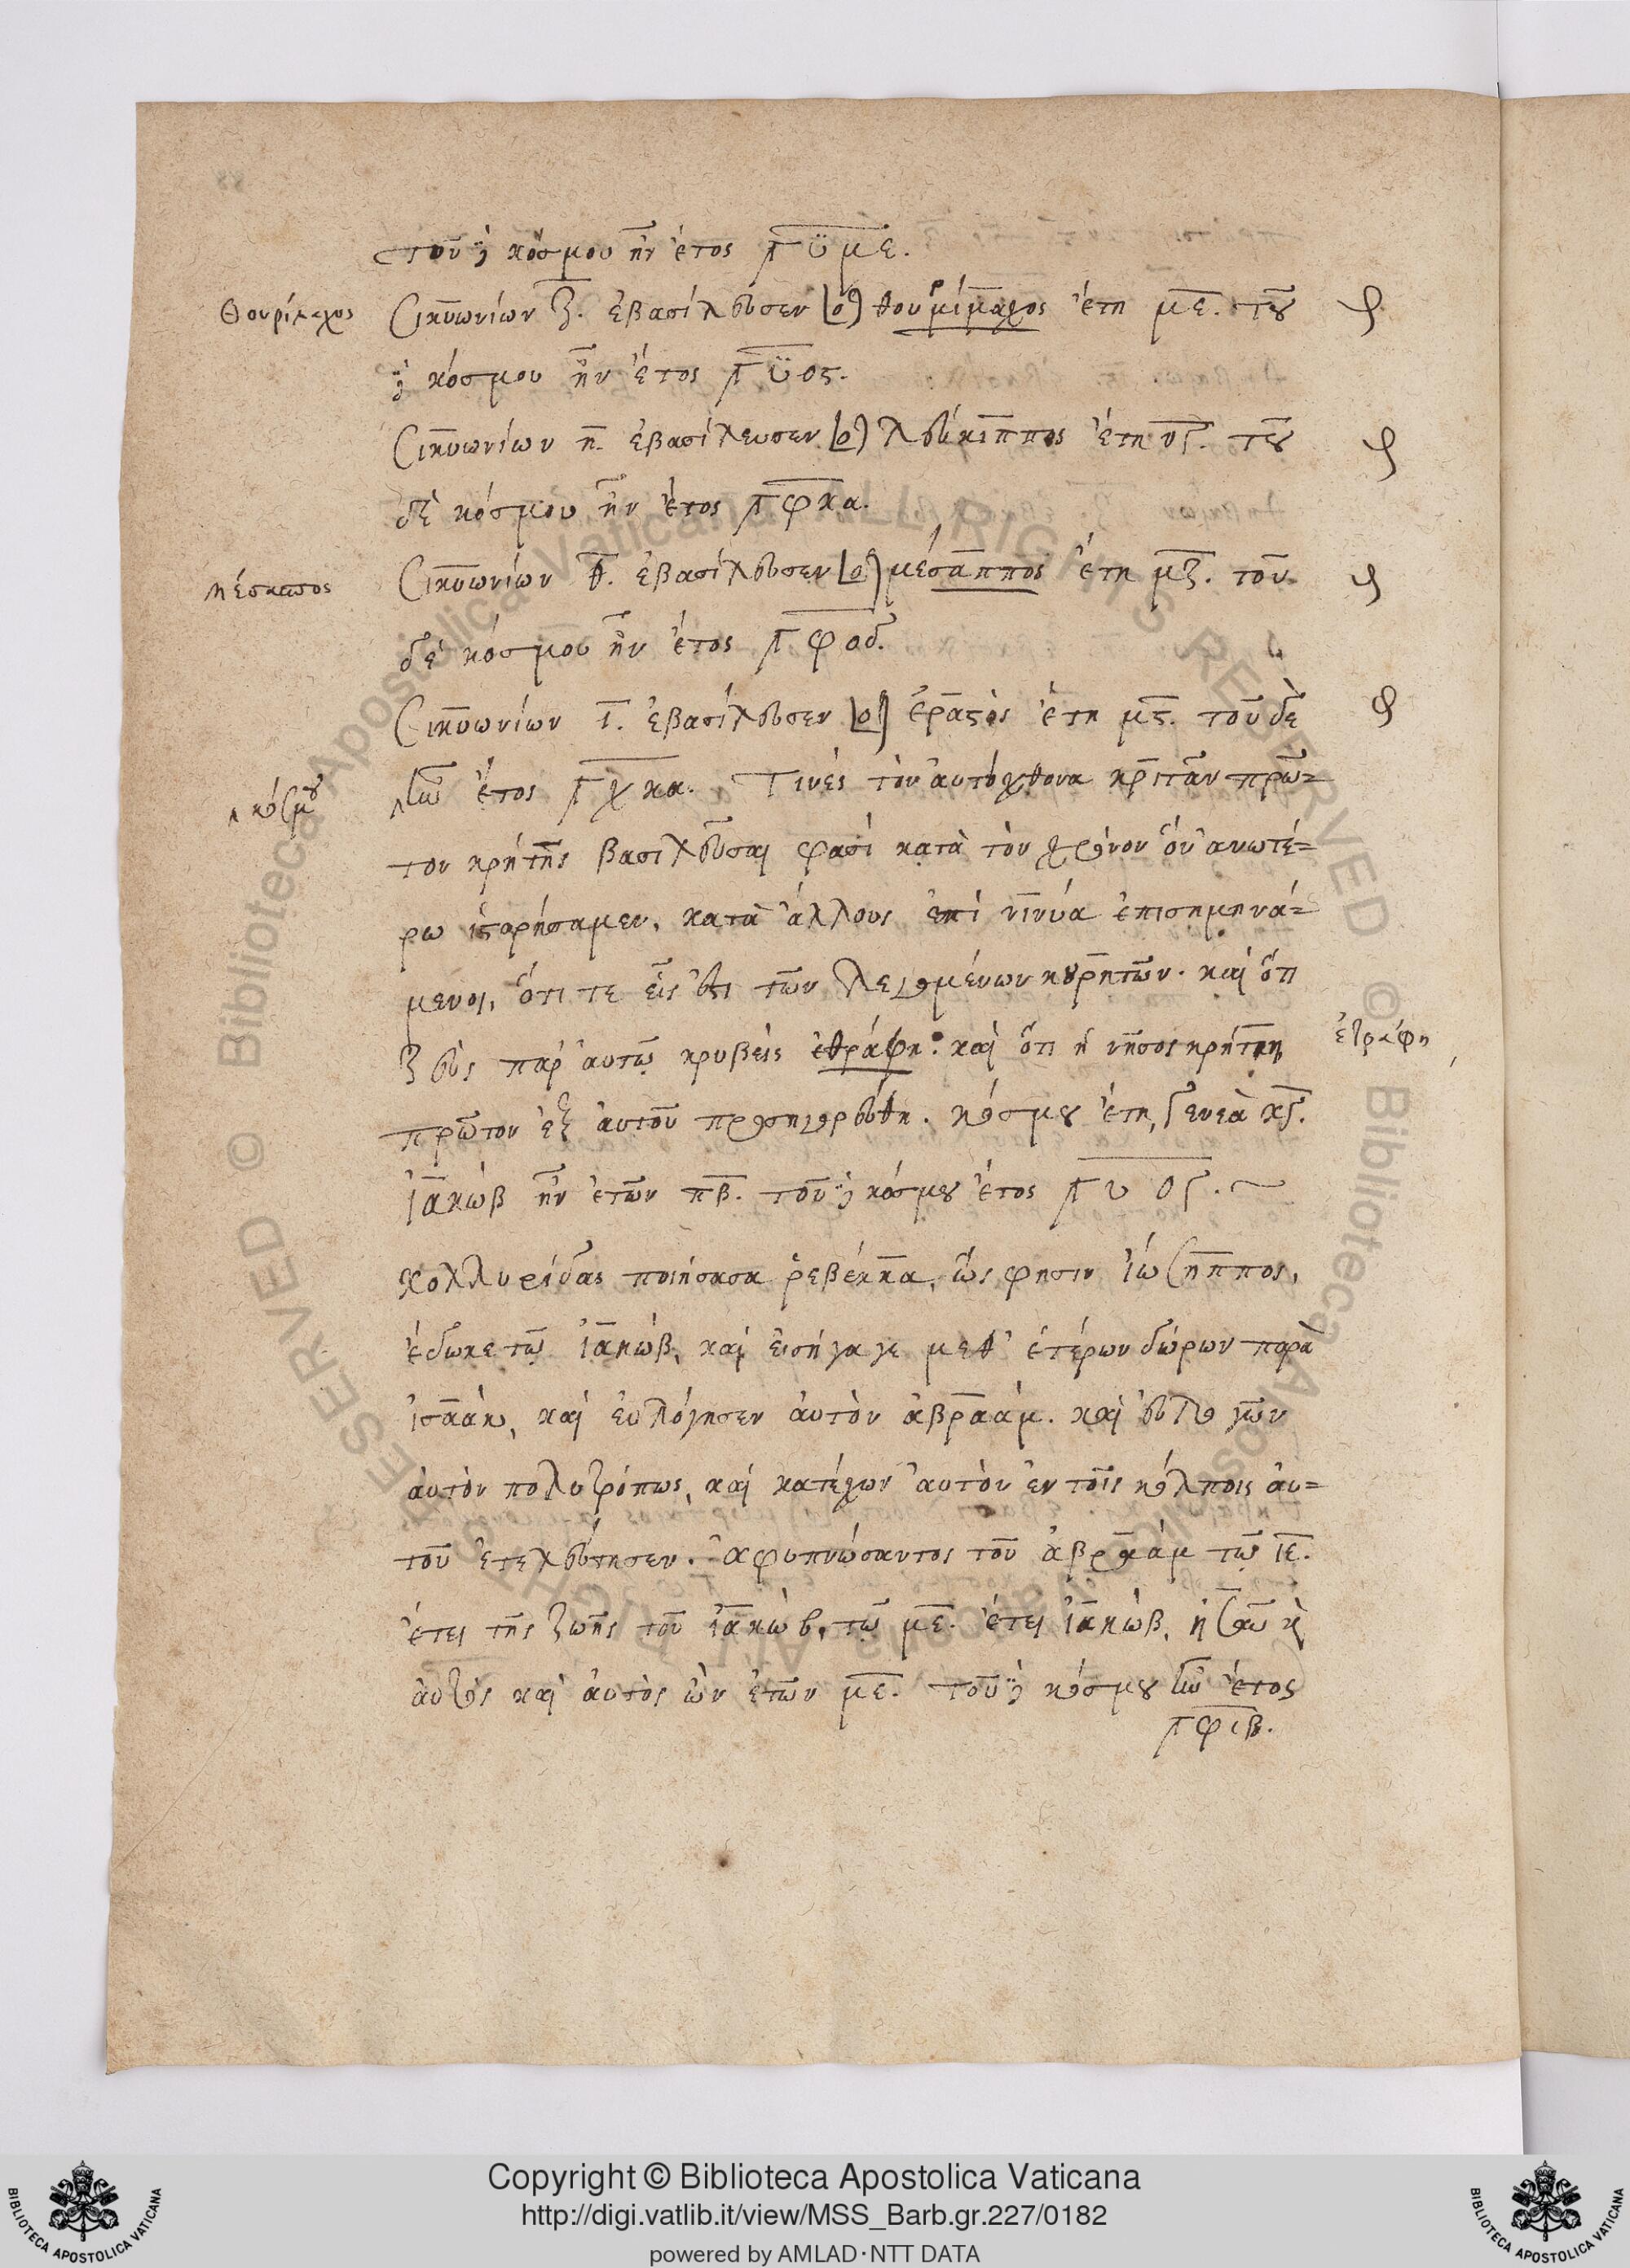 τοῦ δὲ κόσμου ἦν ἔτος ͵γϋμε.
Θουρίμαχος
Σικυωνίων ζ. ἐβασίλευσεν ὁ θουριμίμαχος ἔτη με. τοῦ
δὲ κόσμου ἦν ἔτος ͵γϋος.
Σικυωνίων η. ἐβασίλευσεν ὁ λεύκιππος ἔτη νγ. τοῦ
δὲ κόσμου ἦν ἔτος ͵γφκα.
Μέσαπος
Σικυωνίων θ. ἐβασίλευσεν ὁ μέσαππος ἔτη μζ. τοῦ
δὲ κόσμου ἦν ἔτος ͵γφοδ.
Σικυωνίων ι. ἐβασίλευσεν ὁ ἔραστός ἔτη μς. τοῦ δὲ
κόσμου
ἦν ἔτος ͵γχκα. Τινές τὸν αὐτόχθονα κρῖταν πρῶ=
τον κρήτης βασιλεῦσαι φασί κατὰ τὸν χρόνον ὃν ἀνωτέ=
ρω ἱστορήσαμεν, κατὰ ἄλλους ἐπί νινύα ἐπισημηνά=
μενοι, ὅτι τε εἷς ἐστι τῶν λεγομένων κουρητῶν. καὶ ὅτι
Ζεὺς παρ' αὐτῷ κρυβεὶς ἐθράφη. καὶ ὅτι ἡ νῆσος κρήτη
ἐτράφη
πρῶτον ἐξ αὐτοῦ προσηγορεύθη. κόσμου ἔτη, γενεὰ κγ.
ἰακὼβ ἦν ἐτῶν πβ. τοῦ δὲ κόσμου ἔτος ͵γυ ογ.
κολλυρίδας ποιήσασα ῥεβέκκα, ὥς φησιν ἰώσηππος,
ἔδωκε τῷ ἰακώβ, καὶ εἰσήγαγε μεθ' ἑτέρων δώρων παρὰ
ἰσαάκ, καὶ εὐλόγησεν αὐτὸν ἀβραάμ. καὶ εὐλογῶν
αὐτὸν πολυτρόπως, καὶ κατέχων αὐτὸν ἐν τοῖς κόλποις αὐ=
τοῦ ἐτελεύτησεν. ἀφυπνώσαντος τοῦ ἀβραὰμ τῷ ιε.
ἔτει τῆς ζωῆς τοῦ ἰακὼβ, τῷ με. ἔτει ἰακώβ, ἡσαῦ καὶ
αὐτὸς καὶ αὐτὸς ὢν ἐτῶν με. τοῦ δὲ κόσμου ἦν ἔτος
͵γφιβ.
Copyright © Biblioteca Apostolica Vaticana
http://digi.vatlib.it/view/MSS_Barb.gr.227/0182
powered by AMLAD·NTT DATA